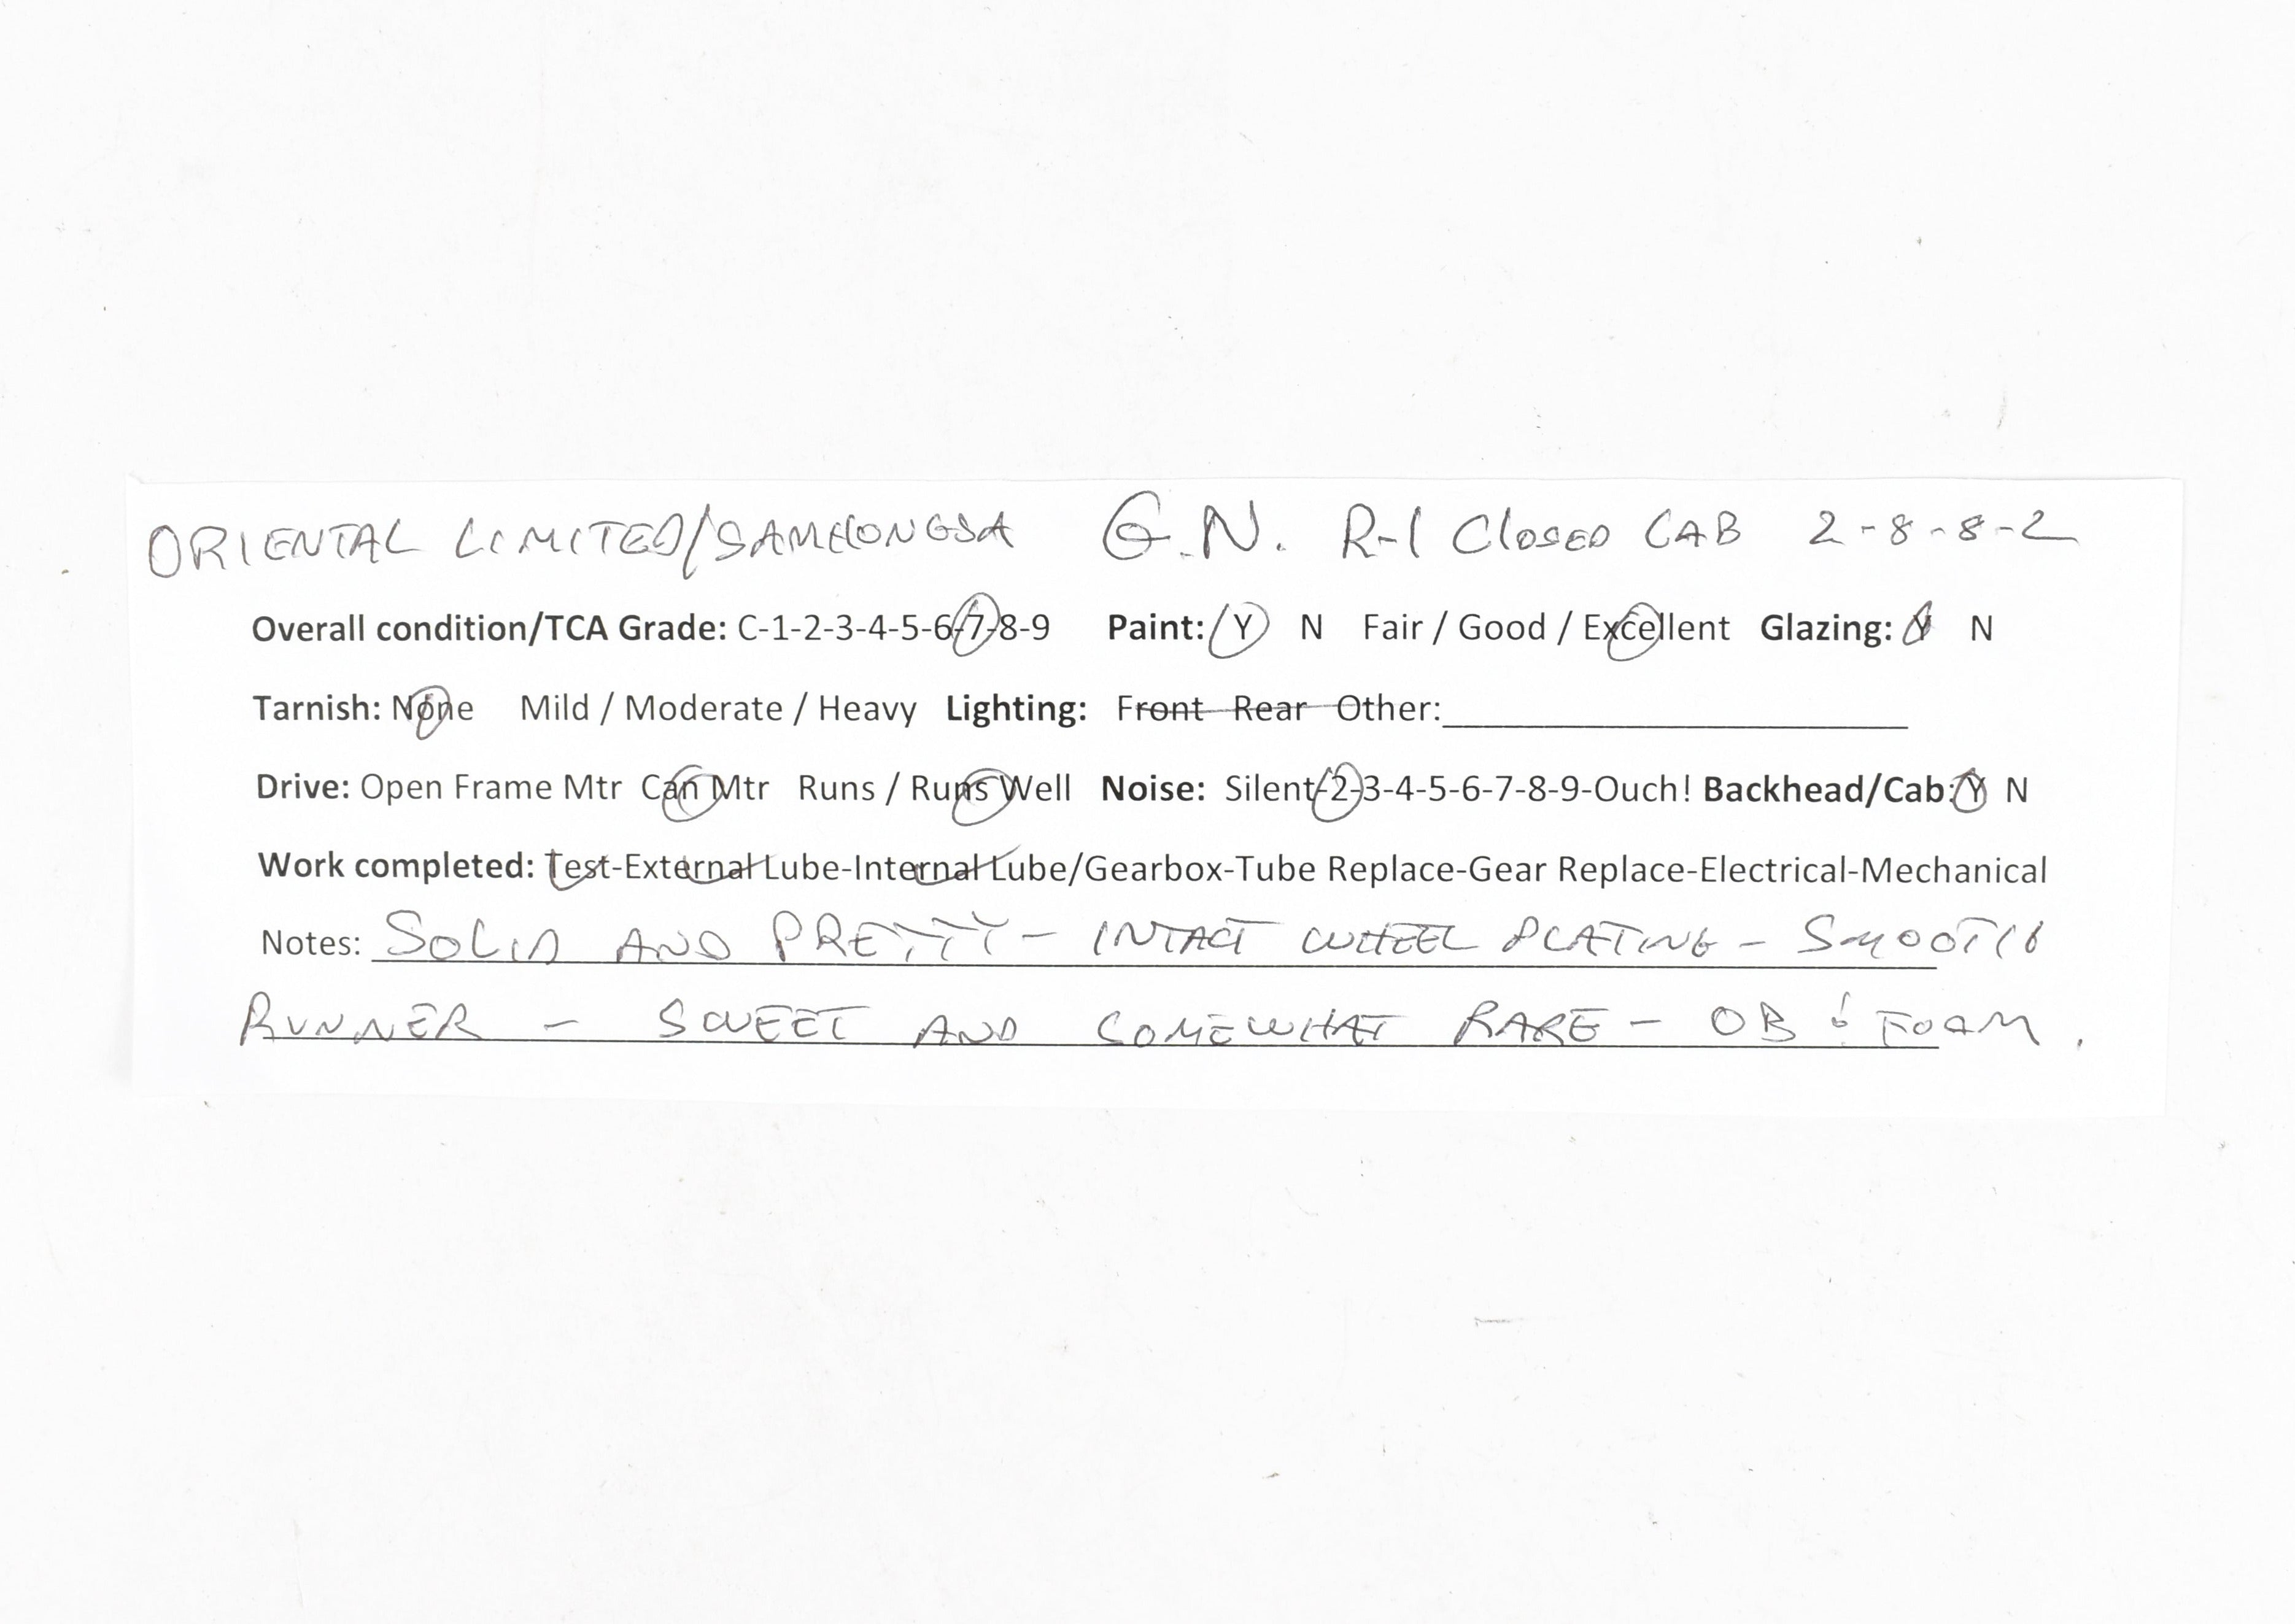 ORIENTAL LIMITED/SAMHONGSA G.N. R-1 CLOSED CAB 2-8-8-2
Overall condition/TCA Grade: C-1-2-3-4-5-6-7-8-9 Paint: Y N Fair / Good / Excellent Glazing: Y N
Tarnish: None Mild / Moderate / Heavy Lighting: Front Rear Other:
Drive: Open Frame Mtr Can Mtr Runs / Runs Well Noise: Silent-2-3-4-5-6-7-8-9-Ouch! Backhead/Cab: Y N
Work completed: Test-External Lube-Internal Lube/Gearbox-Tube Replace-Gear Replace-Electrical-Mechanical
Notes: SOLID AND PRETTY - INTACT WHEEL PLATING - SMOOTH
RUNNER - SWEET AND SOMEWHAT RARE - OB & FOAM.